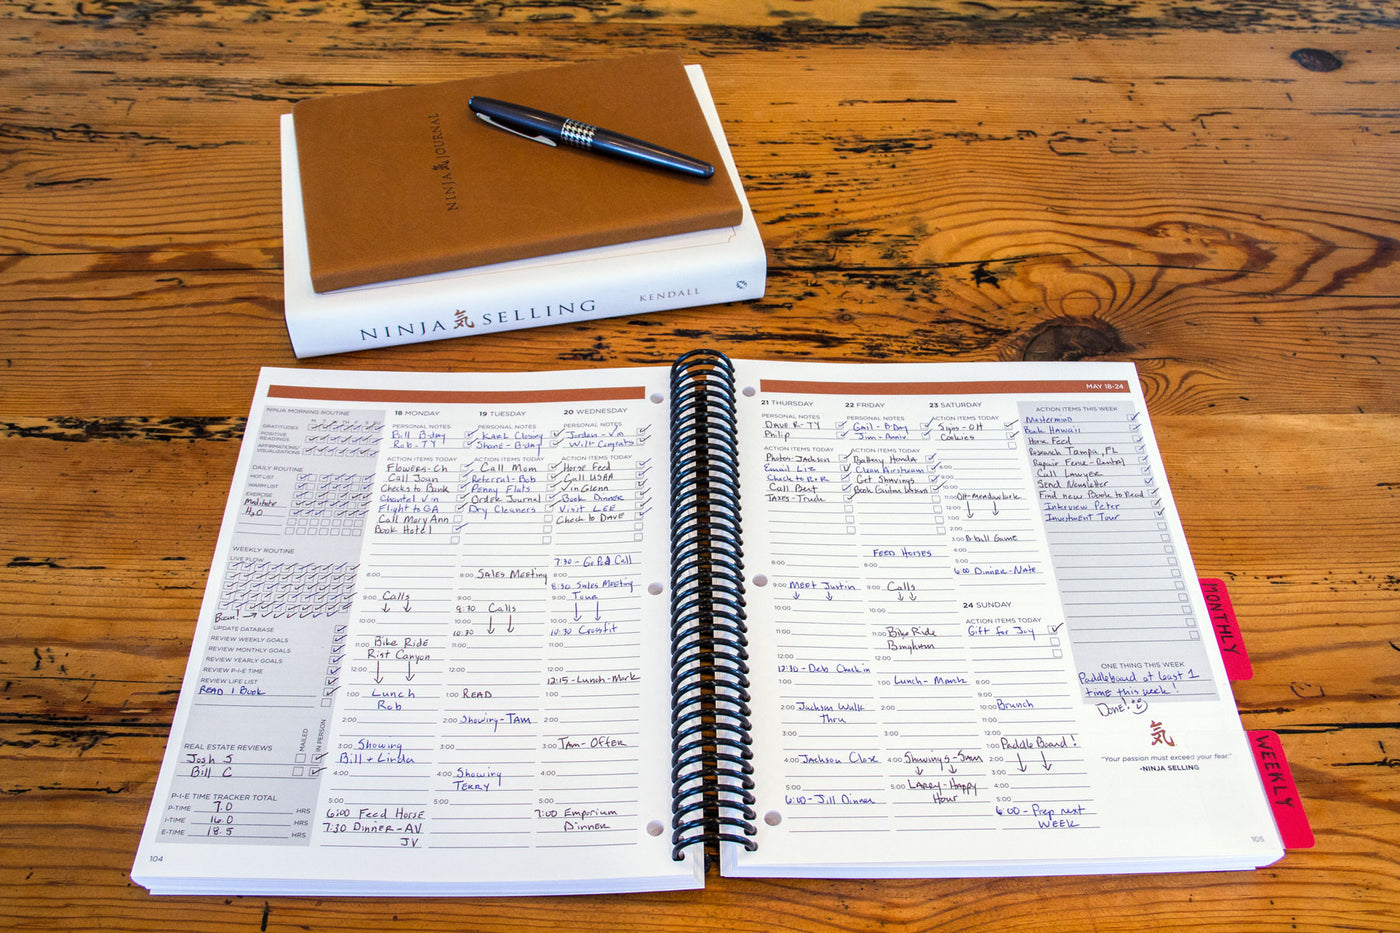 NINJA 気 JOURNAL
NINJA 気 SELLING KENDALL
NINJA MORNING ROUTINE
M T W T F S S
GRATITUDES
POSITIVE READINGS
AFFIRMATIONS/
VISUALIZATIONS
DAILY ROUTINE
HOT LIST
WARM LIST
EXERCISE
Meditate
H2O
WEEKLY ROUTINE
LIVE FLOW
Boom!
UPDATE DATABASE
REVIEW WEEKLY GOALS
REVIEW MONTHLY GOALS
REVIEW YEARLY GOALS
REVIEW P-I-E TIME
REVIEW LIFE LIST
READ 1 Book
MAILED
IN PERSON
REAL ESTATE REVIEWS
Josh S
Bill C
P-I-E TIME TRACKER TOTAL
P-TIME 7.0 HRS
I-TIME 16.0 HRS
E-TIME 18.5 HRS
104
18 MONDAY
PERSONAL NOTES
Bill B-day
Rob-TY
ACTION ITEMS TODAY
Flowers-Ch
Call Joan
Checks to Bank
Chantel v in
Flight to GA
Call Mary Ann
Book Hotel
8:00
9:00 Calls
10:00
11:00 Bike Ride
Rist Canyon
12:00
1:00 Lunch
Rob
2:00
3:00 Showing
Bill + Linda
4:00
5:00
6:00 Feed Horse
7:30 Dinner-AV
JV
19 TUESDAY
PERSONAL NOTES
Karl Closing
Shane-B-day
ACTION ITEMS TODAY
Call Mom
Referral-Bob
Penny Flats
Order Journal
Dry Cleaners
8:00 SALES MEETING
9:30 Calls
10:30
11:00
12:00
1:00 READ
2:00 Showing-TAM
3:00
4:00 Showing
TERRY
5:00
20 WEDNESDAY
PERSONAL NOTES
Jordan-v in
Will-Congrats
ACTION ITEMS TODAY
Horse Feed
Call USAA
v in Glenn
Book Dinner
Visit LEE
Check to DAVE
7:30 - Go Pod Call
8:00
8:30 Sales Meeting
9:00 Tour
10:00
10:30 Crossfit
11:00
12:15-Lunch-Mark
1:00
2:00
3:00 TAM-Offer
4:00
5:00
7:00 Emporium
Dinner
MAY 18-24
21 THURSDAY
PERSONAL NOTES
Dave R-TY
Philip
ACTION ITEMS TODAY
Photos-Jackson
Email Liz
Check to R+R
Call Bert
Taxes-Truck
8:00
9:00 MEET Justin
10:00
11:00
12:00
12:30-Deb Check in
1:00
2:00 Jackson Walk
thru
3:00
4:00 Jackson Close
5:00
6:00-Jill Dinner
22 FRIDAY
PERSONAL NOTES
Gail-B-Day
Jim-Anniv.
ACTION ITEMS TODAY
Battery Honda
Clean Airstream
Get Shavings
Book Guitar Lesson
FEED HORSES
8:00
9:00 Calls
10:00
11:00 Bike Ride
Bingham
12:00
1:00 Lunch-Mark
2:00
3:00
4:00 Showings-Sam
5:00 LARRY-Happy
Hour
23 SATURDAY
ACTION ITEMS TODAY
Signs-OH
Cookies
9:00
10:00
11:00 OH-Meadowlark
12:00
1:00
2:00
3:00 B-ball Game
4:00
5:00
6:00 Dinner-Nate
24 SUNDAY
ACTION ITEMS TODAY
Gift for Joy
8:00
9:00
10:00 Brunch
11:00
12:00
1:00 Paddle Board!
2:00
3:00
4:00
5:00
6:00-Prep next
WEEK
ACTION ITEMS THIS WEEK
Mastermind
Book Hawaii
Horse Feed
Research Tampa, FL
Repair Fence-Rental
Call Lawyer
Send Newsletter
Find new Book to Read
Interview Peter
Investment Tour
ONE THING THIS WEEK
Paddleboard at least 1
time this week!
Done!
気
"Your passion must exceed your fear."
-NINJA SELLING
105
MONTHLY
WEEKLY